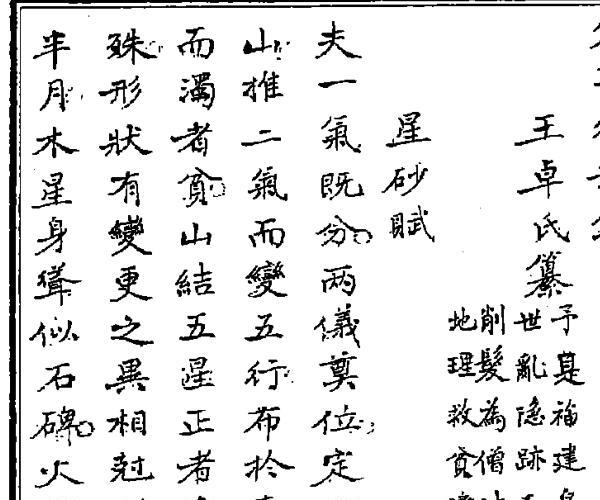 王卓氏纂
予是福建
世亂隐跡
削髮為僧
地理救貧
星砂賦
夫一氣既分兩儀奠位定
山推二氣而變五行布於
而濁者貧山結五星正者
殊形狀有變更之異相尅
半月木星身聳似石碑火